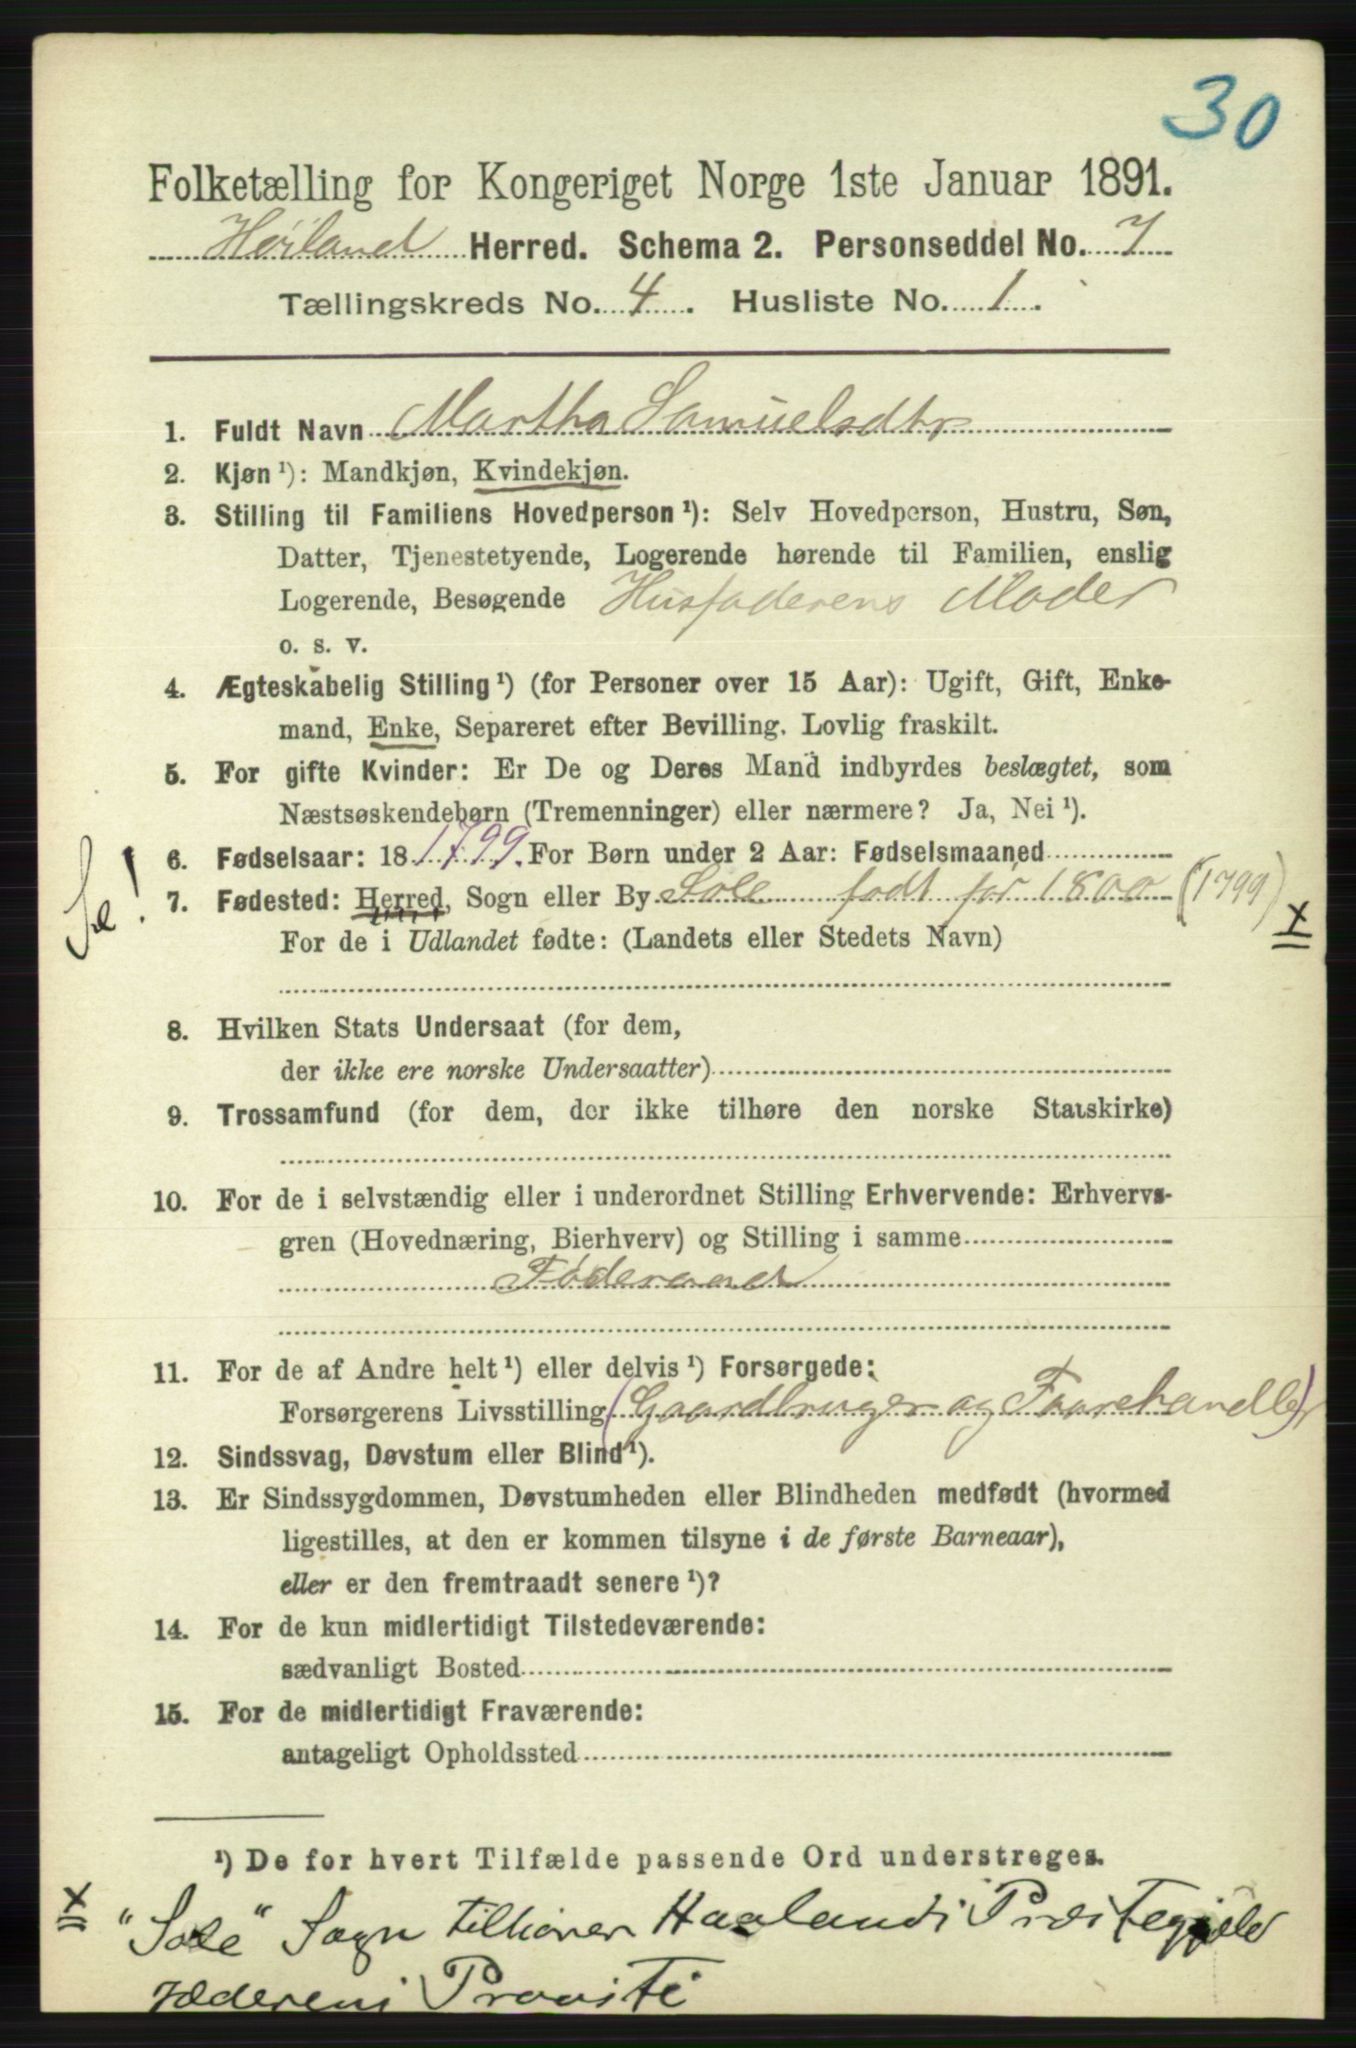 30
Folketælling for Kongeriget Norge 1ste Januar 1891.
Høiland Herred. Schema 2. Personseddel No. 7
Tællingskreds No. 4. Husliste No. 1.
1. Fuldt Navn Martha Samuelsdtr
2. Kjøn ¹): Mandkjøn, Kvindekjøn.
3. Stilling til Familiens Hovedperson ¹): Selv Hovedperson, Hustru, Søn,
Datter, Tjenestetyende, Logerende hørende til Familien, enslig
Logerende, Besøgende Husfaderens Moder
o. s. v.
4. Ægteskabelig Stilling ¹) (for Personer over 15 Aar): Ugift, Gift, Enke-
mand, Enke, Separeret efter Bevilling. Lovlig fraskilt.
5. For gifte Kvinder: Er De og Deres Mand indbyrdes beslægtet, som
Næstsøskendebørn (Tremenninger) eller nærmere? Ja, Nei ¹).
6. Fødselsaar: 18 1799. For Børn under 2 Aar: Fødselsmaaned
Se!
7. Fødested: Herred, Sogn eller By Sole født før 1800 (1799) x
For de i Udlandet fødte: (Landets eller Stedets Navn)
8. Hvilken Stats Undersaat (for dem,
der ikke ere norske Undersaatter)
9. Trossamfund (for dem, der ikke tilhøre den norske Statskirke)
10. For de i selvstændig eller i underordnet Stilling Erhvervende: Erhvervs-
gren (Hovednæring, Bierhverv) og Stilling i samme
Føderaad
11. For de af Andre helt ¹) eller delvis ¹) Forsørgede:
Forsørgerens Livsstilling (Gaardbruger og Faarehandler)
12. Sindssvag, Døvstum eller Blind ¹).
13. Er Sindssygdommen, Døvstumheden eller Blindheden medfødt (hvormed
ligestilles, at den er kommen tilsyne i de første Barneaar),
eller er den fremtraadt senere ¹)?
14. For de kun midlertidigt Tilstedeværende:
sædvanligt Bosted
15. For de midlertidigt Fraværende:
antageligt Opholdssted
¹) De for hvert Tilfælde passende Ord understreges.
x "Sole" Sogn tilhører Haalands Præstegjeld
Jæderens Provsti